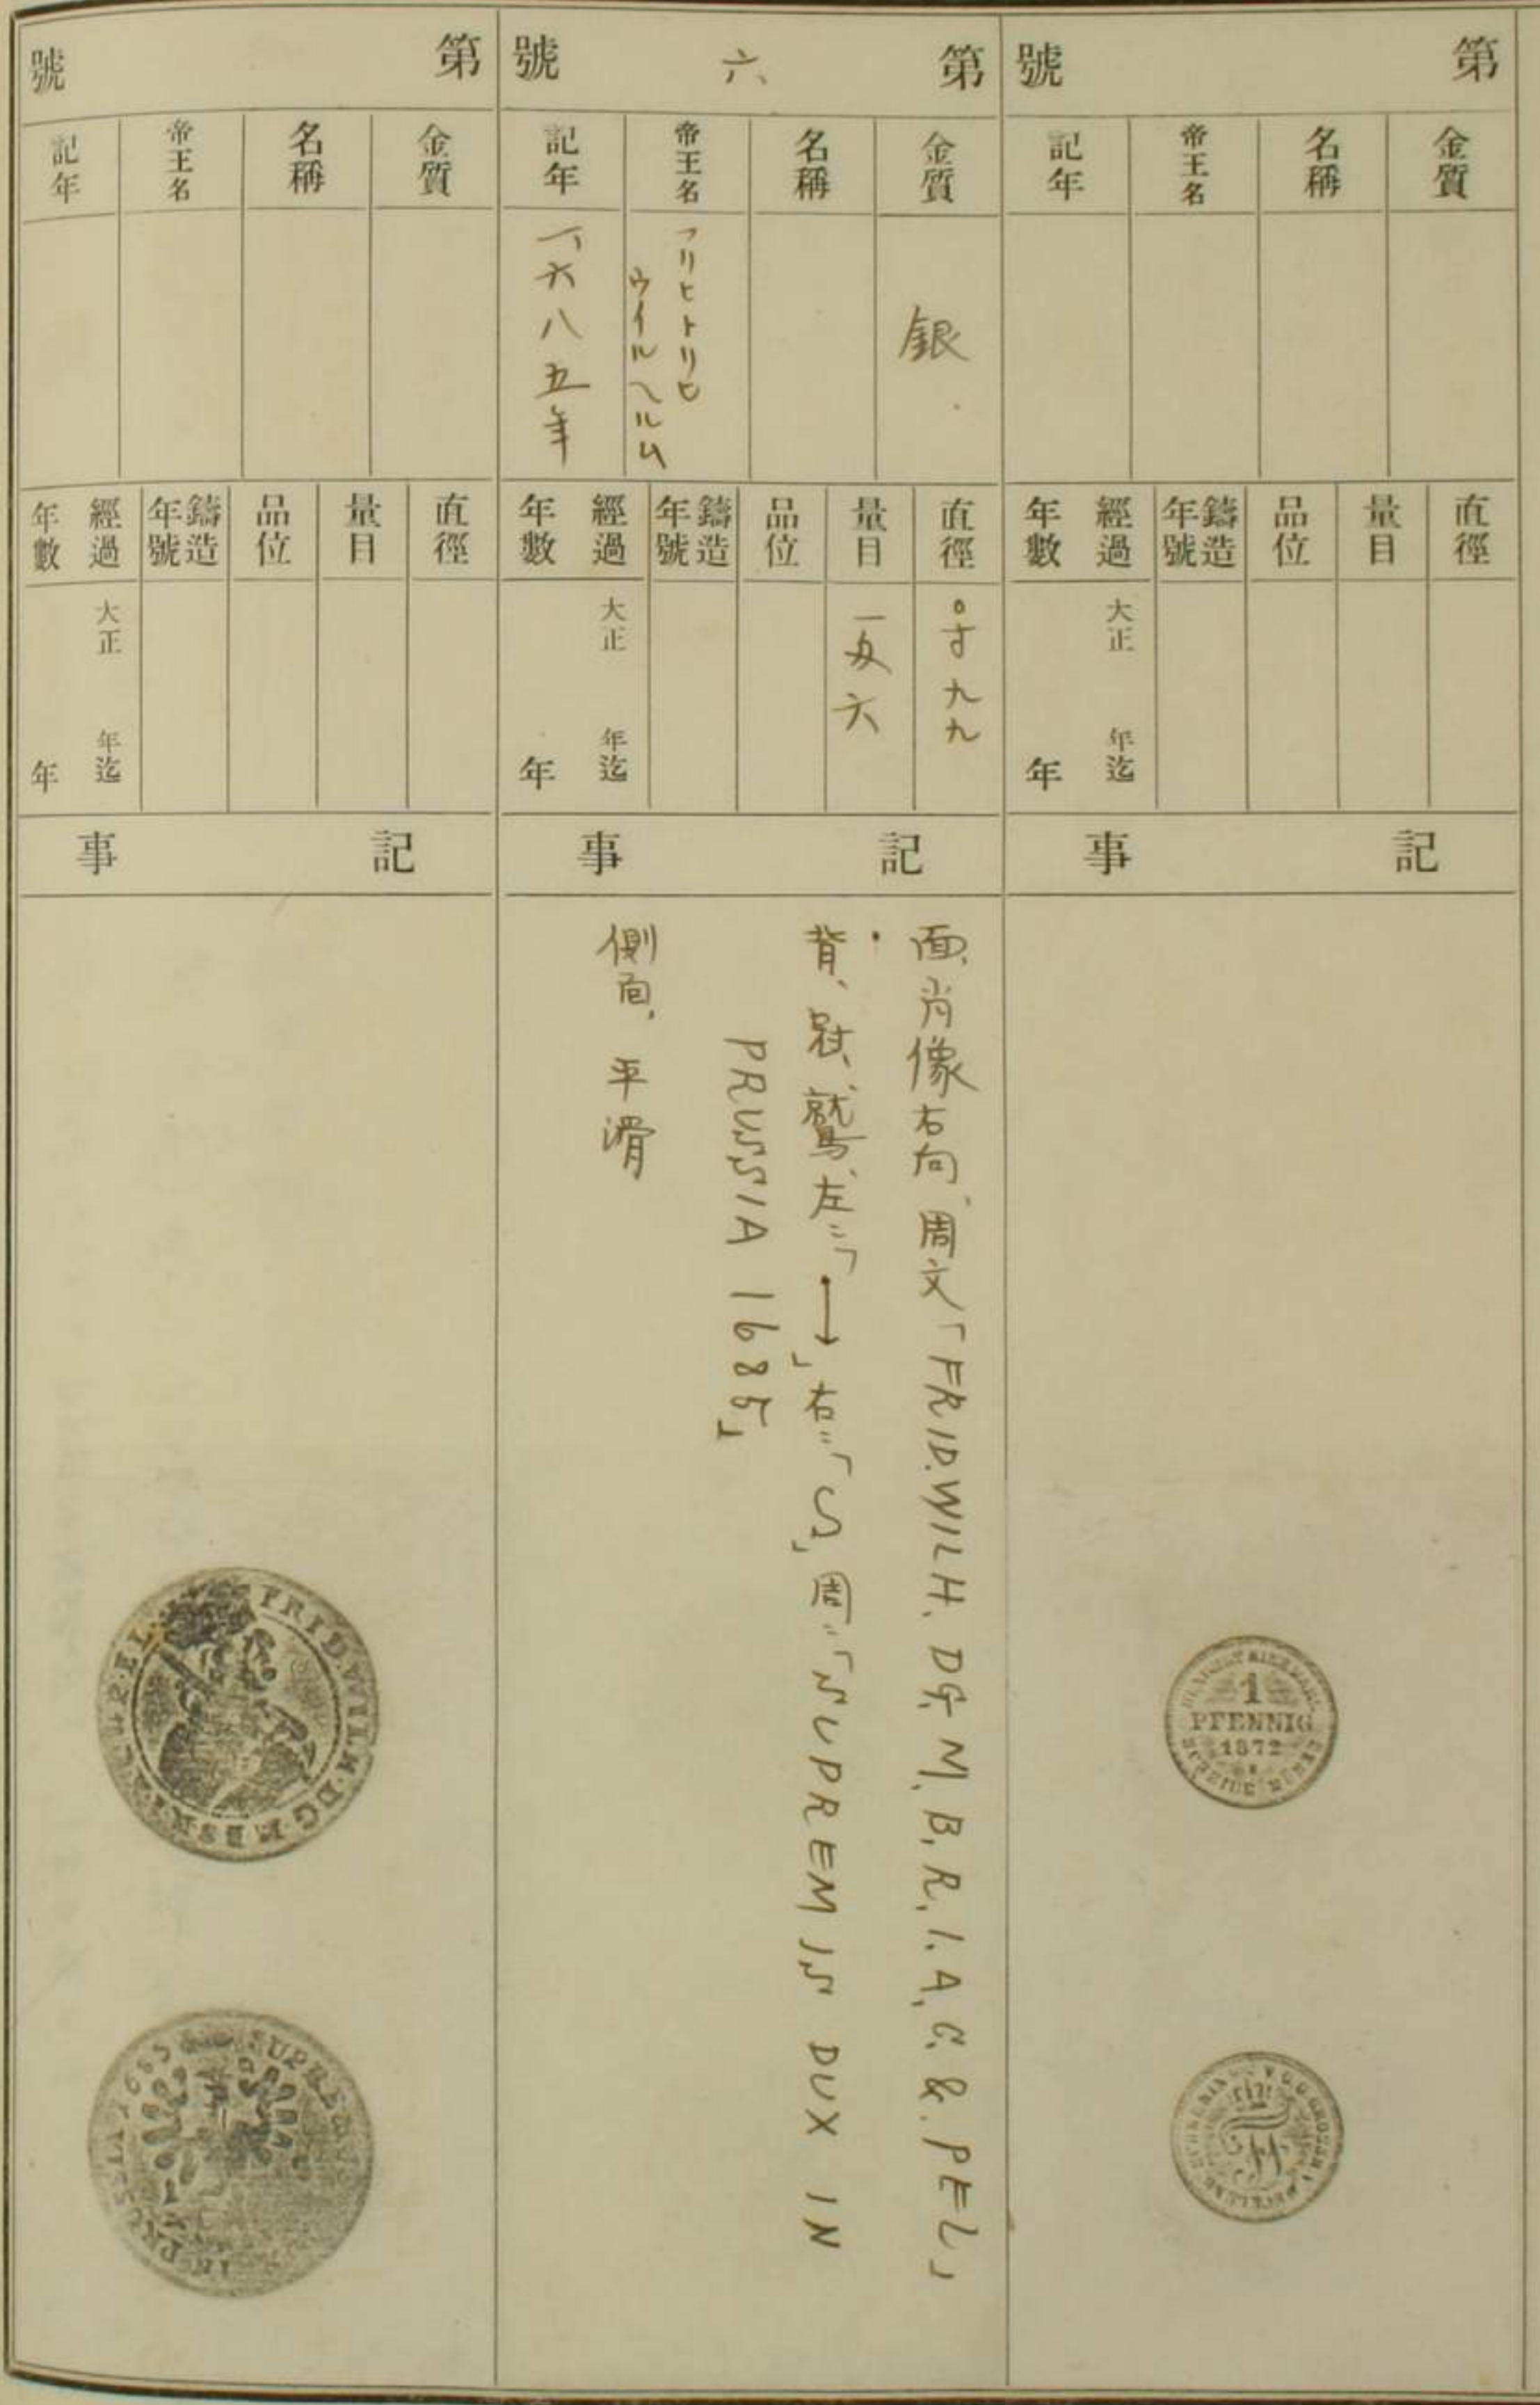 第 號
金質
名稱
帝王名
記年
直徑
量目
品位
鑄造年號
經過年數
大正 年迄
年
記 事
1
PFENNIG
1872
第 六、 號
金質
銀
名稱
帝王名
フリヒトリヒ
ウイルヘルム
記年
一六八五年
直徑
〇寸九九
量目
一匁六
品位
鑄造年號
經過年數
大正 年迄
年
記 事
面、肖像右向、周文「FRID.WILH. DG. M. B. R. I. A. C. & . PEL」
背、冠、鷲、左ニ「 」右ニ「S」周ニ「SUPREM IS DUX IN
PRUSSIA 1685」
側面、平滑
第 號
金質
名稱
帝王名
記年
直徑
量目
品位
鑄造年號
經過年數
大正 年迄
年
記 事
FRID.WILH.DG.
SUPREMUS
1685